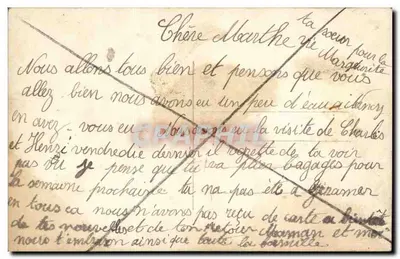 Chère Marthe
ta soeur pour la vie Marguerite
Nous allons tous bien et pensons que vous
allez bien nous avons eu un peu d'eau a
en avez-vous eu la visite de Charles
et Henri vendredie dernier il de ta voir
pas eu je pense que tu va plier bagages pour
la semaine prochaine ta na pas elle a
en tous ca nous n'avons pas reçu de carte a bientôt
de tes nouvelles et de ton retour Maman et moi
nous t'embrason ainsi que toute la famille